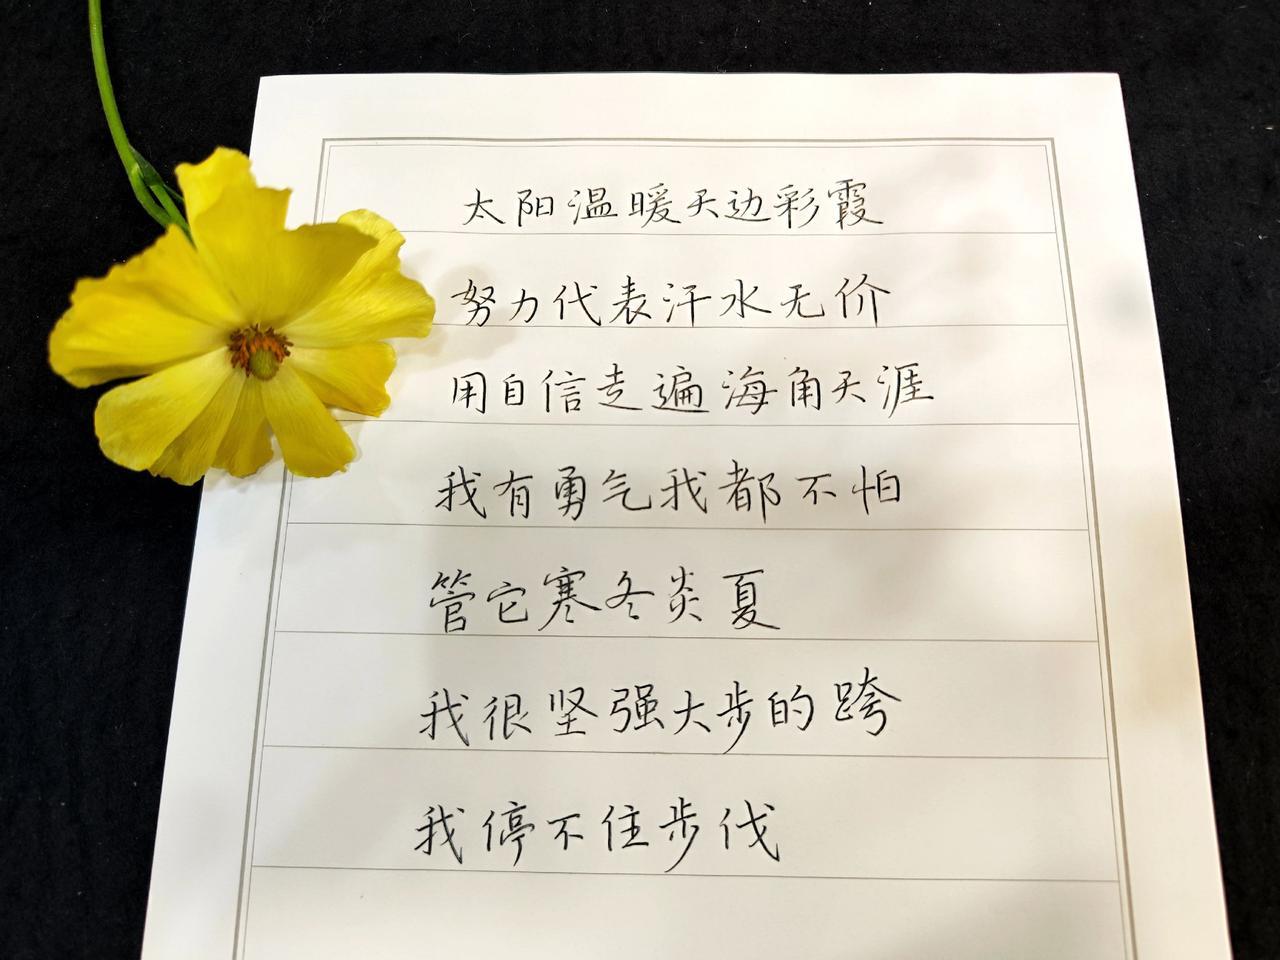 太阳温暖天边彩霞
努力代表汗水无价
用自信走遍海角天涯
我有勇气我都不怕
管它寒冬炎夏
我很坚强大步的跨
我停不住步伐